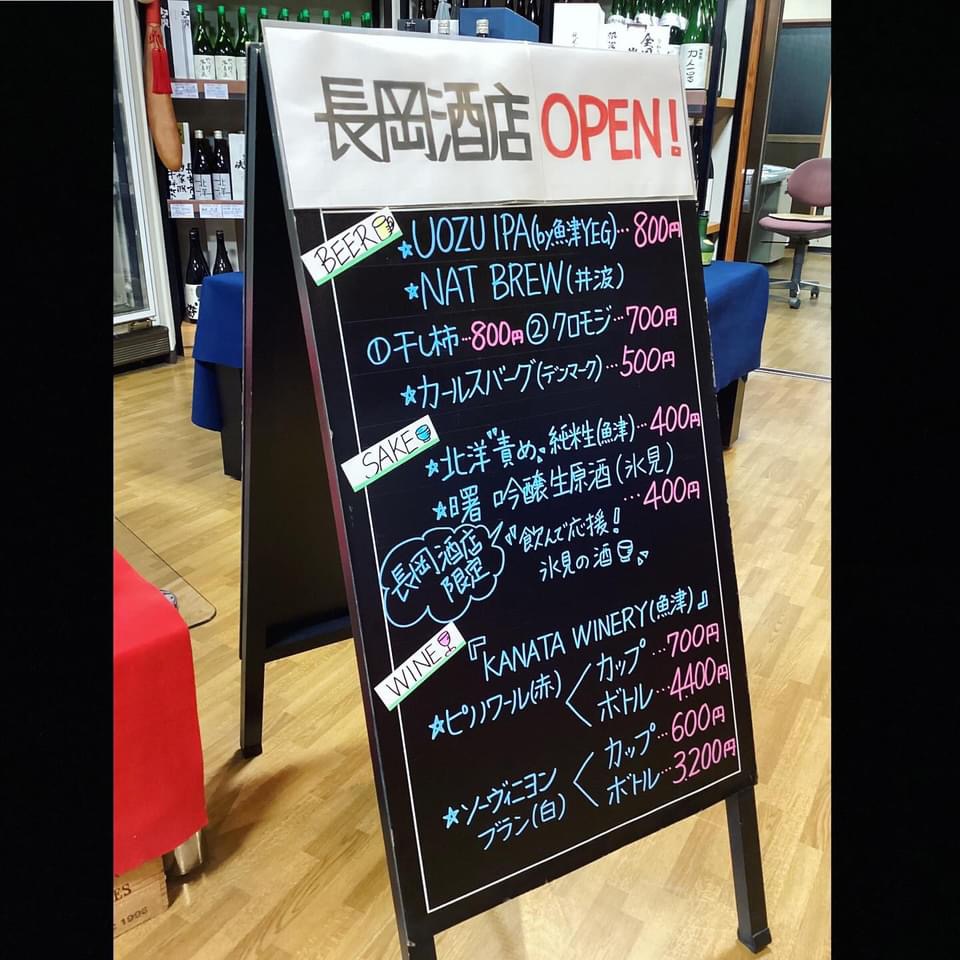 長岡酒店 OPEN!
BEER
★UOZU IPA(by魚津YEG)…800円
★NAT BREW(井波)
①干し柿…800円 ②クロモジ…700円
★カールスバーグ(デンマーク)…500円
SAKE
★北洋"責め"純米生(魚津)…400円
★曙 吟醸生原酒(氷見)
…400円
長岡酒店
限定
"飲んで応援!
氷見の酒"
WINE
『KANATA WINERY(魚津)』
★ピノノワール(赤)
カップ…700円
ボトル…4,400円
★ソーヴィニヨン
ブラン(白)
カップ…600円
ボトル…3,200円
1996